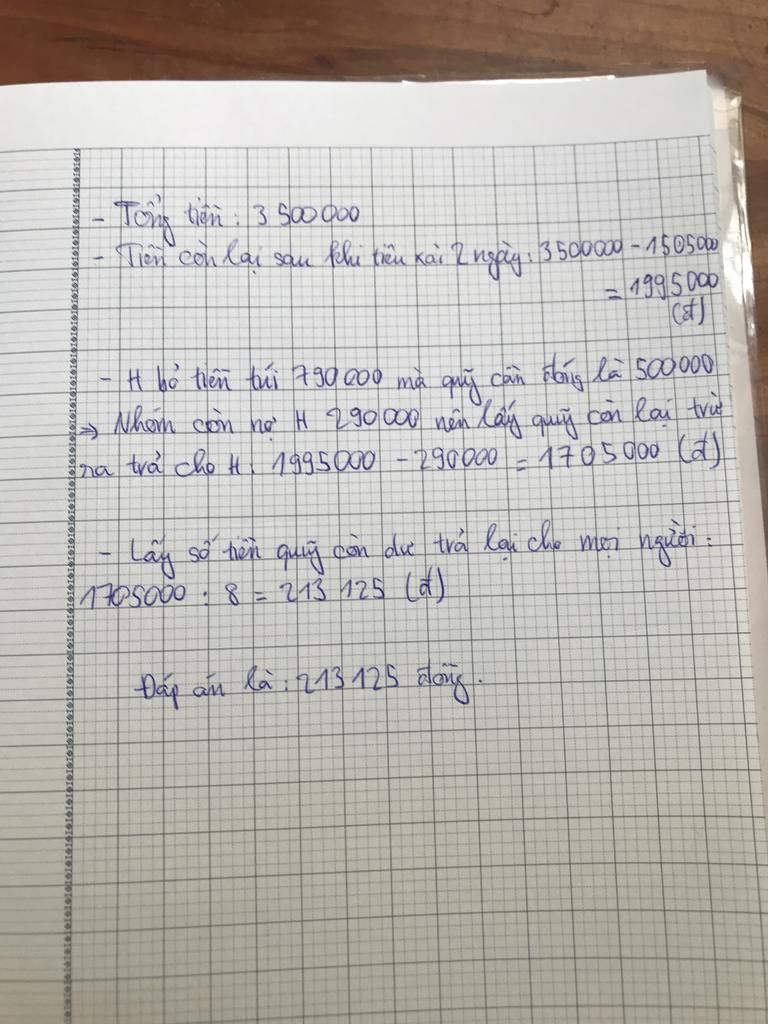 - Tổng tiền : 3 500 000
- Tiền còn lại sau khi tiêu xài 2 ngày : 3500000 - 1505000
= 1995000
(đ)
- H bỏ tiền túi 790000 mà quỹ cần đóng là 500000
=> Nhóm còn nợ H 290000 nên lấy quỹ còn lại trừ
ra trả cho H : 1995000 - 290000 = 1705000 (đ)
- Lấy số tiền quỹ còn dư trả lại cho mọi người :
1705000 : 8 = 213 125 (đ)
Đáp án là : 213 125 đồng.